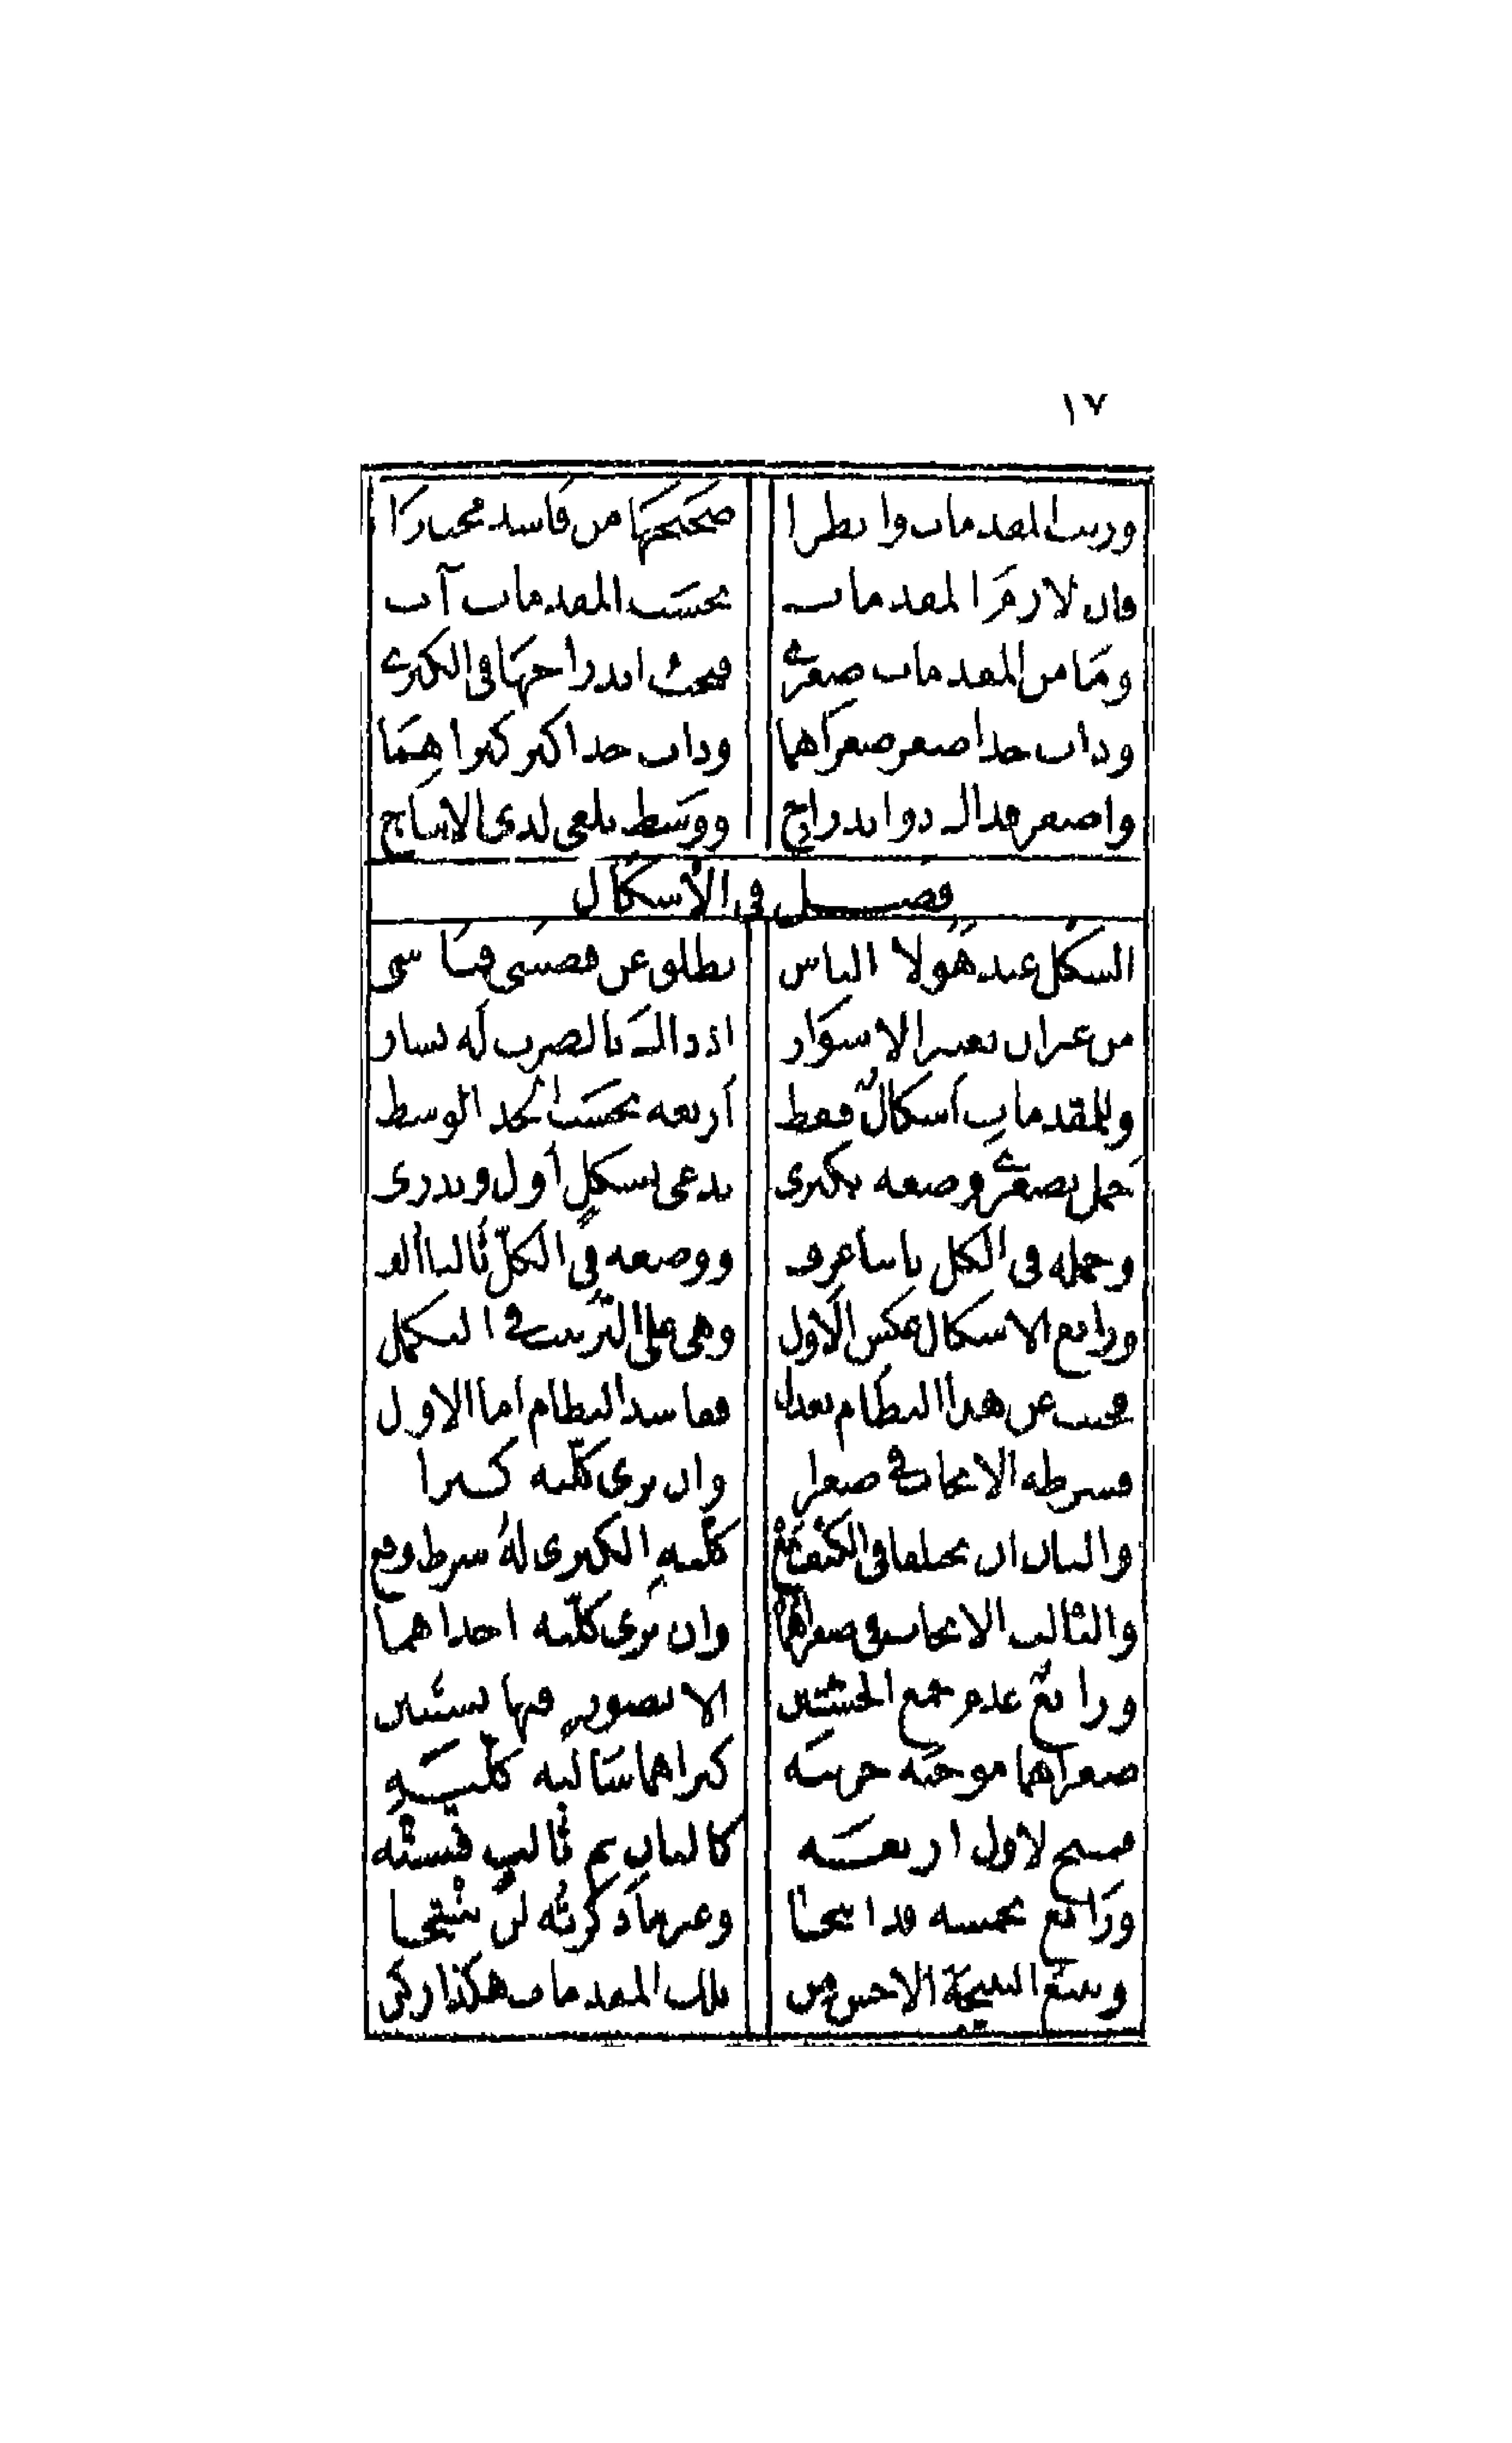 ١٧
ورتب المقدمات وانظرا صحيحها من فاسد مختبرا
فان لازم المقدمات بحسب المقدمات آت
وما من المقدمات صغرى فيجب اندراجها في الكبرى
وذات حد اصغر صغراهما وذات حد اكبر كبراهما
واصغر فذاك ذو اندراج ووسط يلغى لدى الانتاج
فصل في الأشكال
الشكل عند هؤلا الناس يطلق عن قضيتي قياس
من غير ان تعتبر الاسوار اذ ذاك بالضرب له يشار
وللمقدمات أشكال فقط أربعة بحسب الحد الوسط
حمل بصغرى وضعه بكبرى يدعى بشكل أول ويدرى
وحمله في الكل ثانيا عرف ووضعه في الكل ثالثا ألف
ورابع الاشكال عكس الأول وهي على الترتيب في التكمل
فحيث عن هذا النظام يعدل ففاسد النظام اما الاول
فشرطه الايجاب في صغراه وان ترى كلية كبراه
والثان ان يختلفا في الكيف مع كلية الكبرى له شرط وقع
والثالث الايجاب في صغراهما وان ترى كلية احداهما
ورابع عدم جمع الخستين الا بصورة ففيها يستبين
صغراهما موجبة جزئية كبراهما سالبة كلية
فمنتج لاول اربعة كالثان ثم ثالث فستة
ورابع بخمسة قد انتجا وغير ما ذكرته لن ينتجا
وتتبع النتيجة الاخس من تلك المقدمات هكذا زكن